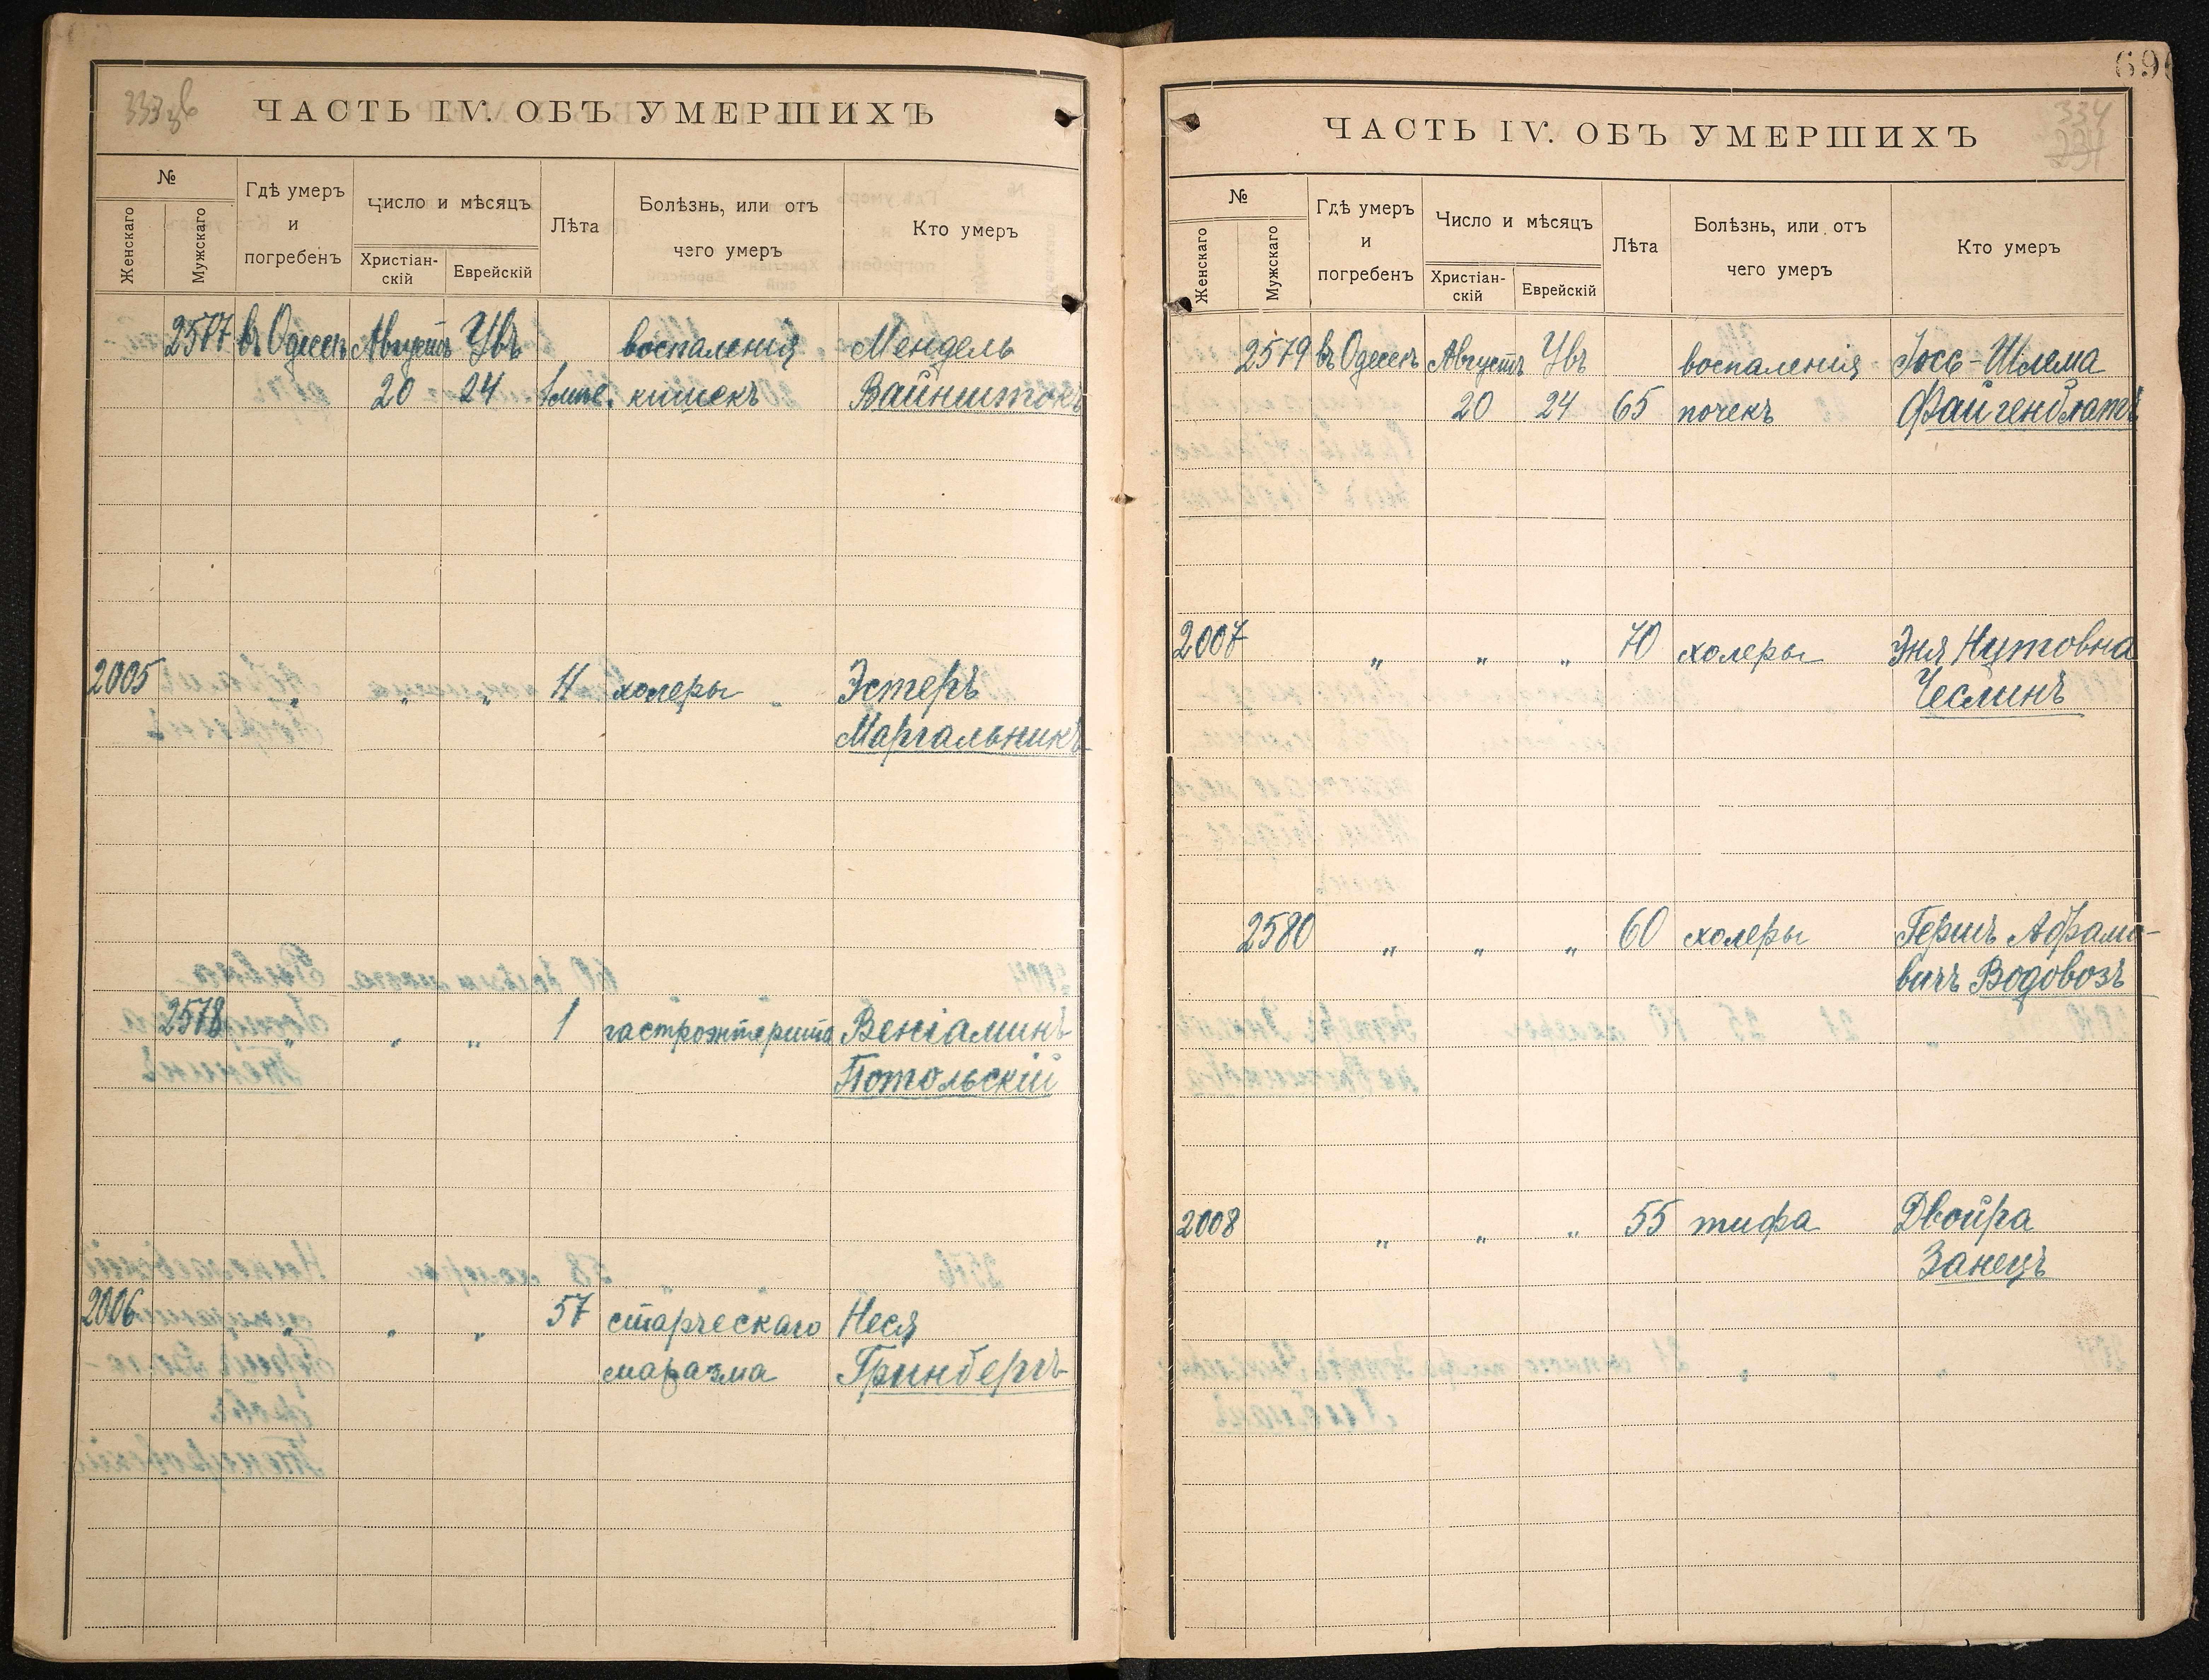 ЧАСТЬ IV. ОБЪ УМЕРШИХЪ
№
Женскаго
Мужскаго
Гдѣ умеръ
и
погребенъ
Число и мѣсяцъ
Христіан-
скій
Еврейскій
Лѣта
Болѣзнь, или отъ
чего умеръ
Кто умеръ
2577 въ Одессѣ Августъ Увъ воспаленія Мендель
20 24 1 кишекъ Вайнштокъ
2005 " " " 4 холеры Эстеръ
Маргальникъ
2578 " " " 1 гастроэнтерита Веніаминъ
Потольскій
2006 " " " 57 старческаго Неся
маразма Гринбергъ
690
334
231
ЧАСТЬ IV. ОБЪ УМЕРШИХЪ
№
Женскаго
Мужскаго
Гдѣ умеръ
и
погребенъ
Число и мѣсяцъ
Христіан-
скій
Еврейскій
Лѣта
Болѣзнь, или отъ
чего умеръ
Кто умеръ
2579 въ Одессѣ Августъ Увъ воспаленія Іосъ-Шлема
20 24 65 почекъ Файгенблатъ
2007 " " " 70 холеры Эня Нутовна
Чеслинъ
2580 " " " 60 холеры Гершъ Абрамо-
вичъ Водовозъ
2008 " " " 55 тифа Двойра
Занецъ